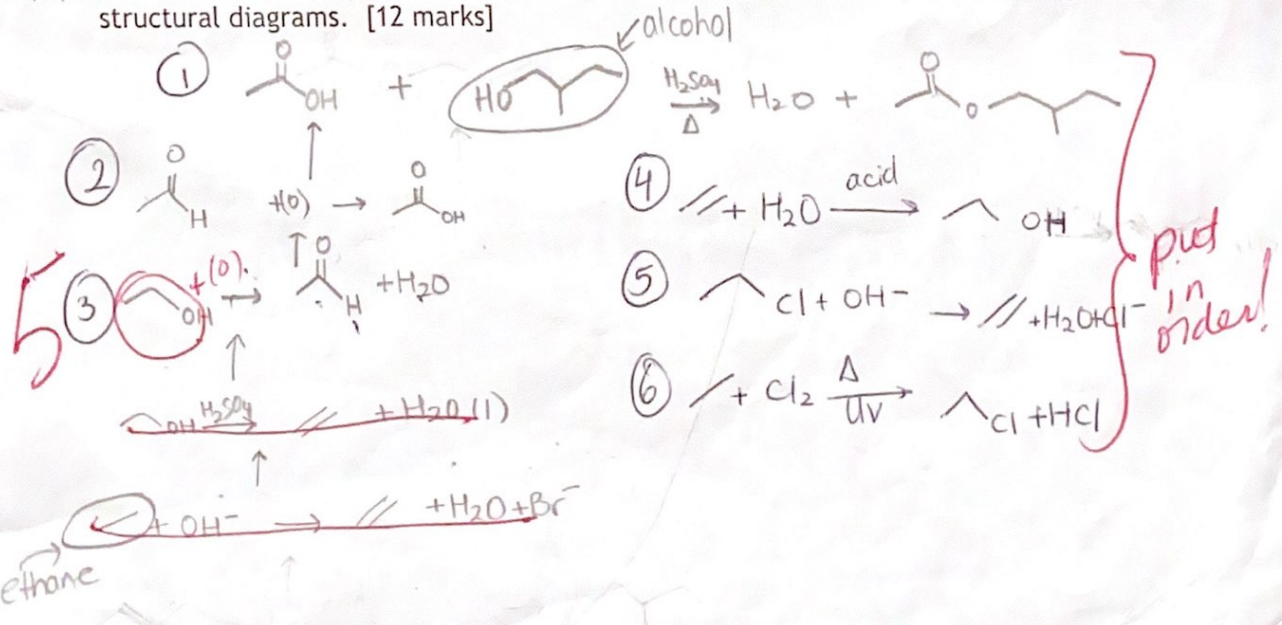 structural diagrams. [12 marks]
alcohol
① O OH + HO H₂SO₄ Δ → H₂O + O O
② O H +(O) → O OH
③ OH +(O). → O H + H₂O
5
OH H₂SO₄ → + H₂O (l)
+ OH⁻ → + H₂O + Br⁻
ethane
④ + H₂O acid → OH
⑤ Cl + OH⁻ → + H₂O + Cl⁻
⑥ + Cl₂ Δ UV → Cl + HCl
put
in
order!